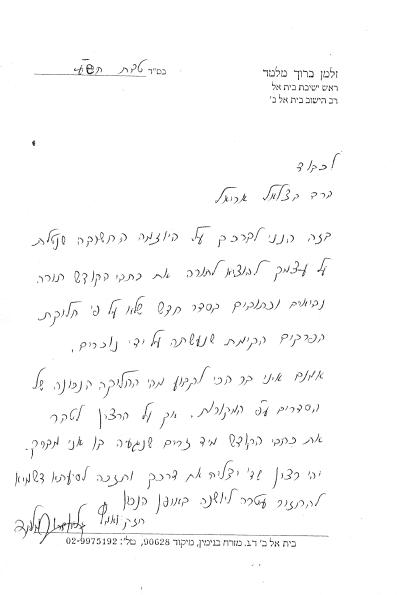 זלמן ברוך מלמד
בס"ד טבת
ראש ישיבת בית אל
רב הישוב בית אל ב'
לכבוד
הרב בצלאל אריאל
בזה הנני לברכך על היוזמה החשובה שנטלת
על עצמך להוציא לאורה את כתבי הקודש תורה
נביאים וכתובים בסדר חדש שלא על פי חלוקת
הפרקים הקימת שנעשתה על ידי נוכרים.
אמנם איני בר הכי לקבוע מהי החלוקה הנכונה של
הסדרים עפ"י המקורות, אך על הרצון לטהר
את כתבי הקודש מיד זרים שנגעה בו אני מברך.
יהי רצון שד' יצליח את דרכך ותזכה לסיעתא דשמיא
להחזיר עטרה ליושנה באופן הנכון
חזק ואמץ
בית אל ב' ד.נ. מזרח בנימין, מיקוד 90628, טל': 02-9975192